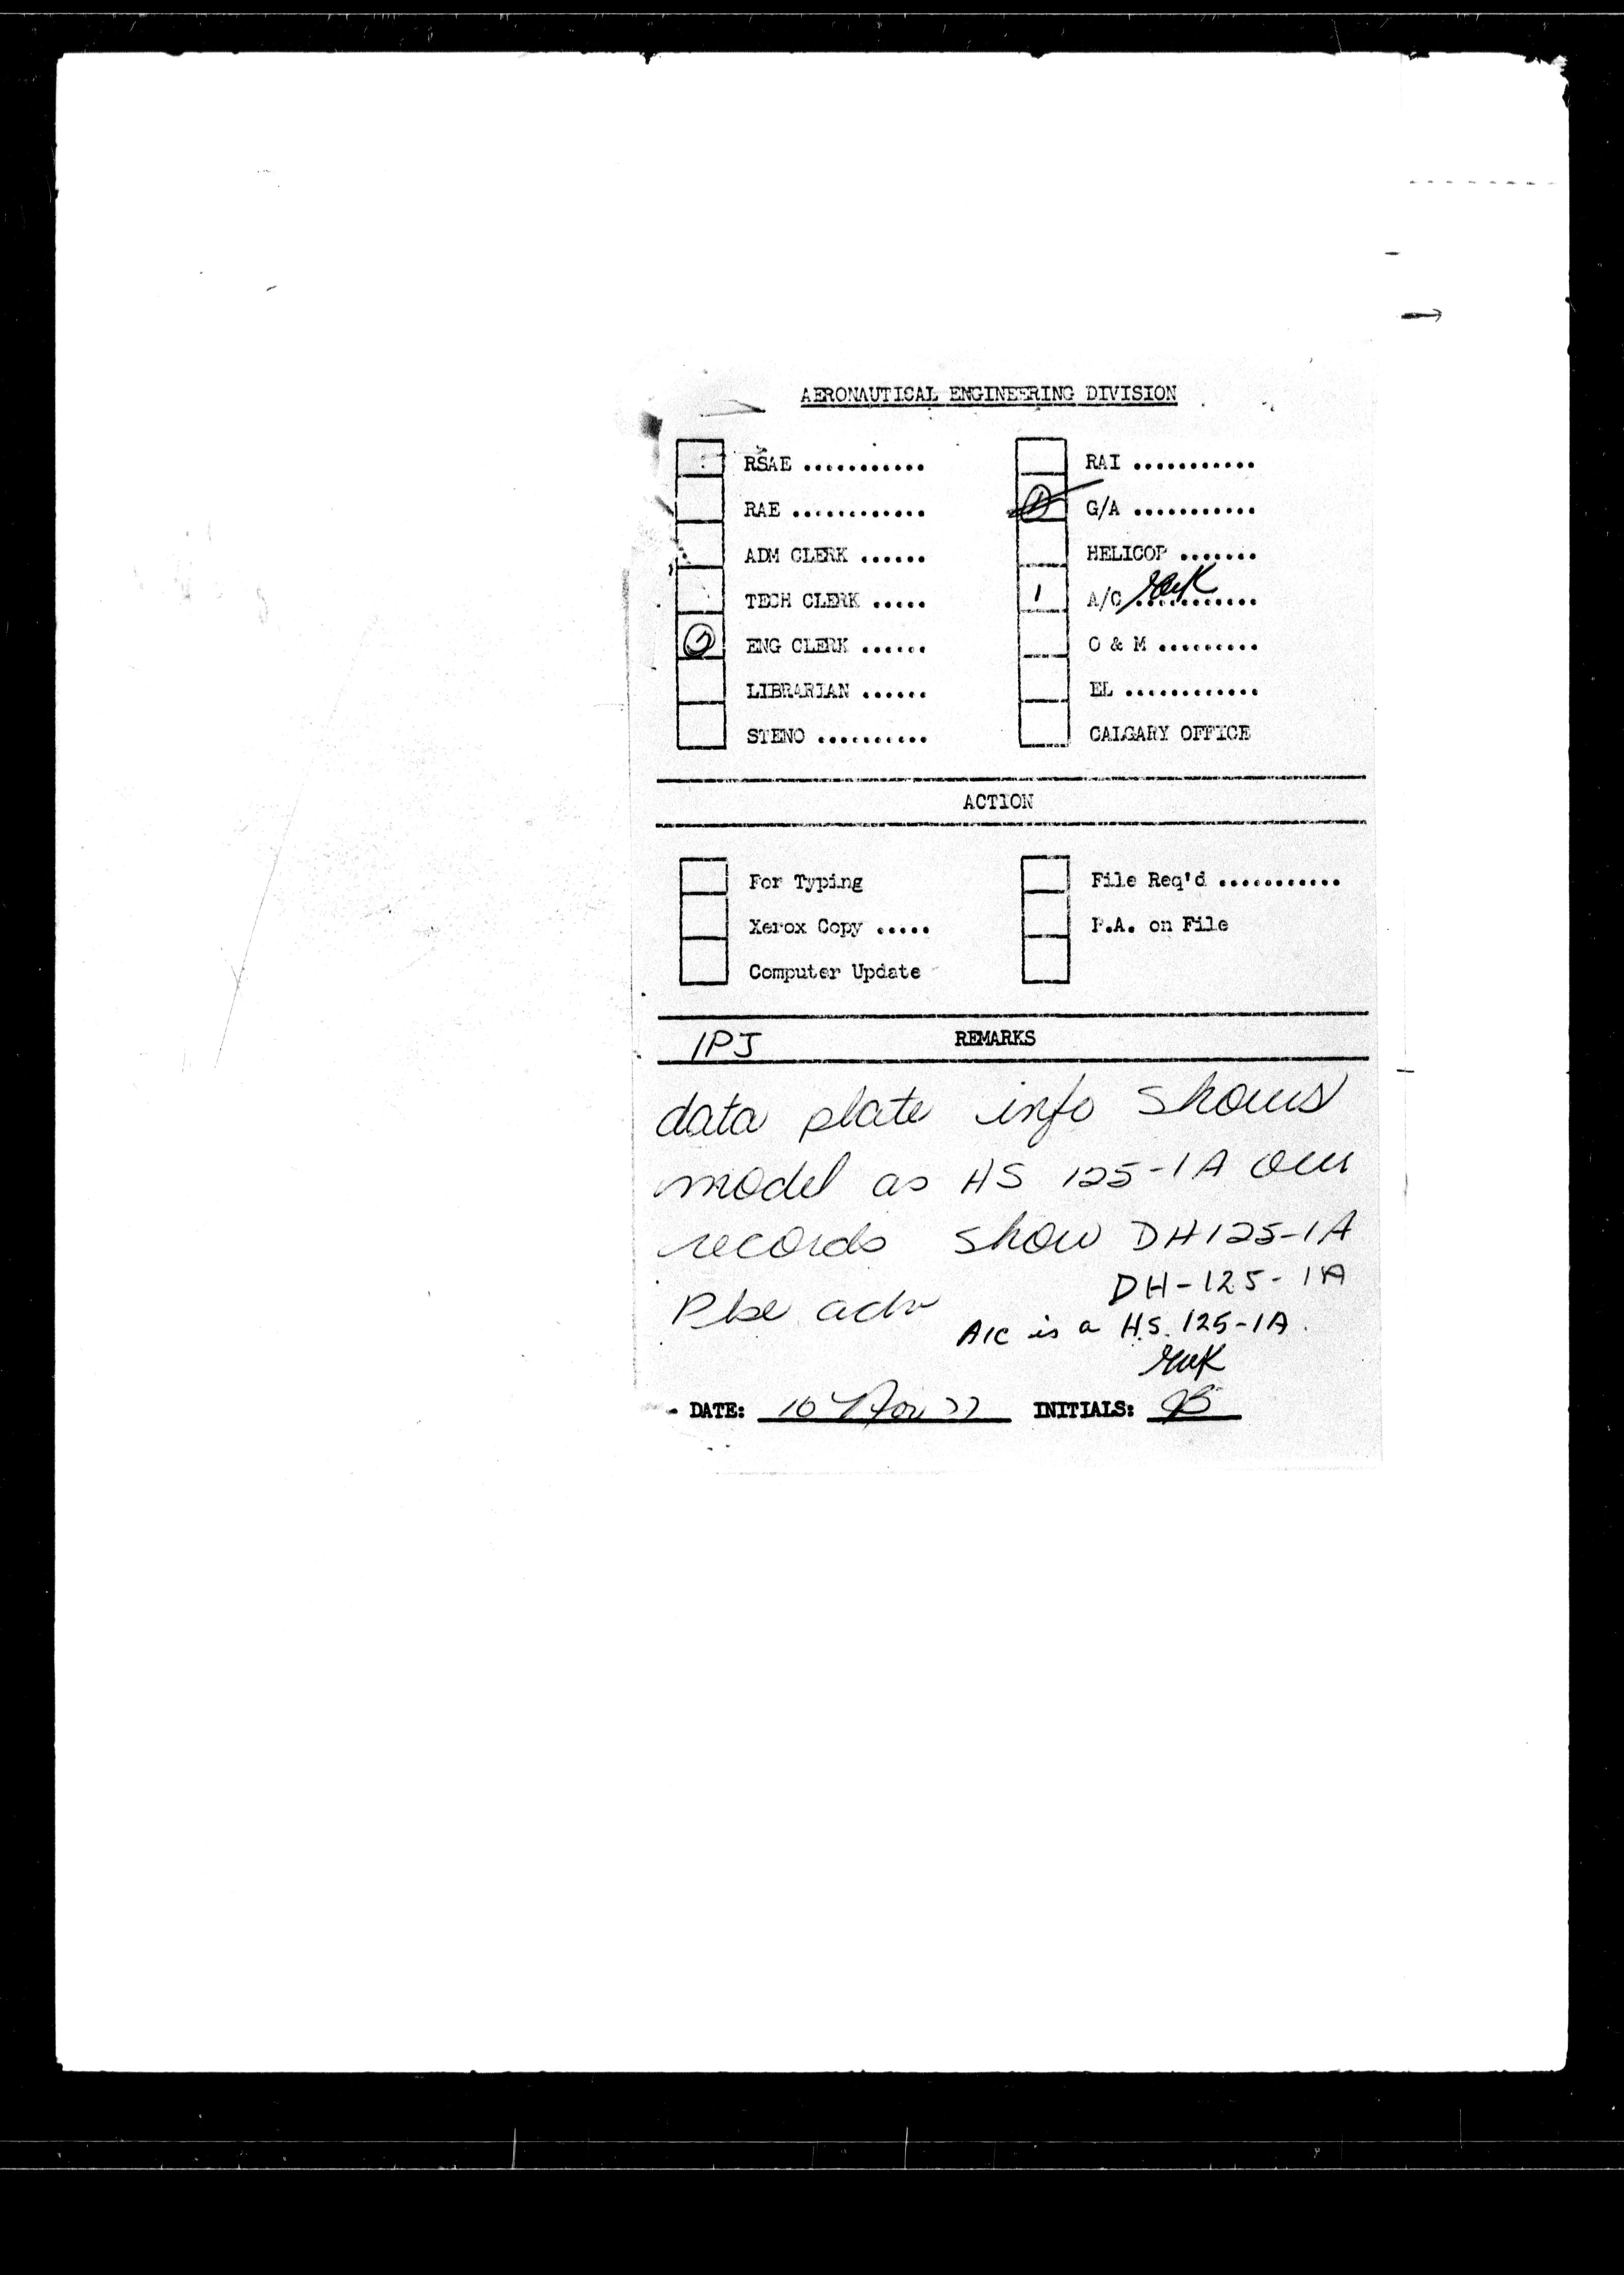 AERONAUTICAL ENGINEERING DIVISION
RSAE ...........
RAE ............
ADM CLERK ......
TECH CLERK .....
ENG CLERK ......
LIBRARIAN ......
STENO ..........
RAI ...........
G/A ...........
HELICOP .......
1 A/C ...........
O & M .........
EL ............
CALGARY OFFICE
ACTION
For Typing
Xerox Copy .....
Computer Update
File Req'd ...........
P.A. on File
IPJ REMARKS
data plate info shows
model as HS 125-1A our
records show DH125-1A
DH-125-1A
Plse adv
A/C is a H.S. 125-1A.
DATE: 10 Nov 77 INITIALS: